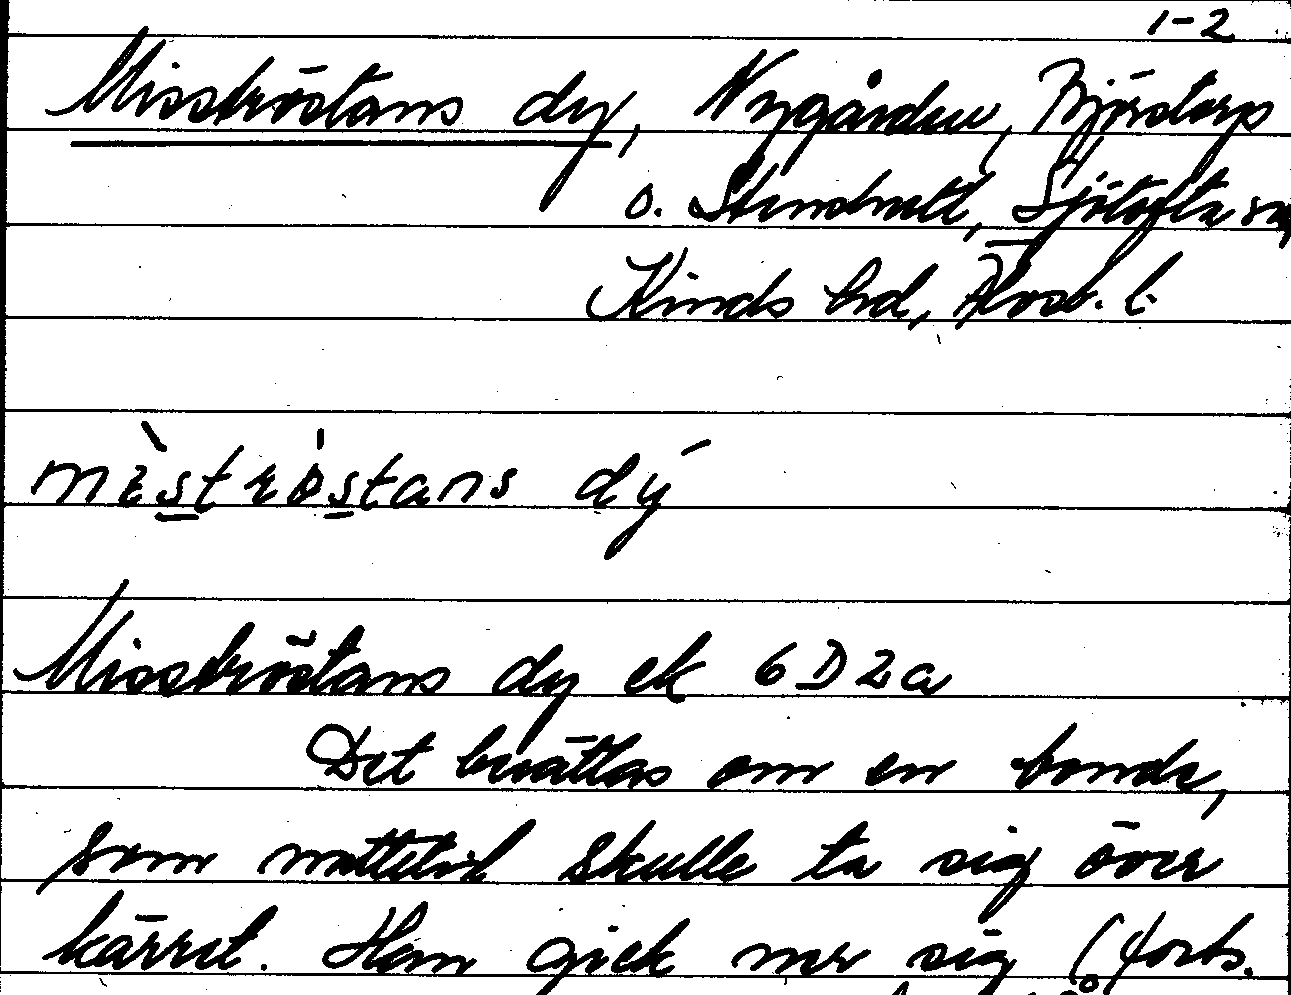 1-2
Misströstans dy, Nygården, Bjärstorp
o. Stendratt, Sjötofta sn
Kinds hd, Älvsb. l.
mèstrø̀stans dý
Misströstans dy ek 6D2a
Det berättas om en bonde,
som nattetid skulle ta sig över
kärret. Han gick ner sig (forts.